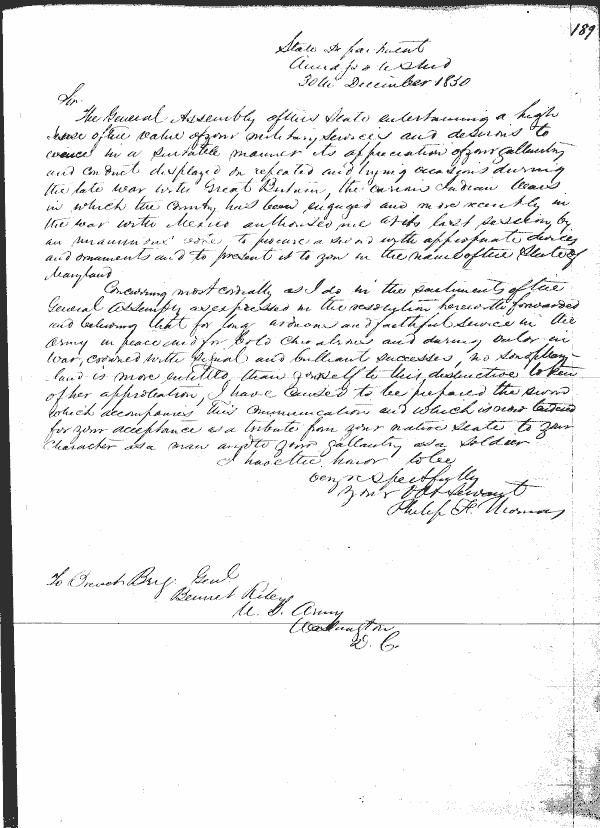 189
State Department
Annapolis Md
30th December 1850
Sir.
The General Assembly of this State entertaining a high
sense of the value of your military services and desirous to
evince in a suitable manner its appreciation of your gallantry
and conduct displayed on repeated and trying occasions during
the late war with Great Britain, the various Indian wars
in which the Country has been engaged and more recently in
the war with Mexico authorised me at its last session by
an unanimous voice to procure a sword with appropriate devices
and ornaments and to present it to you in the name of the State of
Maryland
Concurring most cordially as I do in the sentiments of the
General Assembly as expressed in the resolution herewith forwarded
and believing that for long arduous and faithful service in the
Army in peace and for bold chivalrous and daring valor in
War, crowned with signal and brilliant successes, no son of Mary-
land is more entitled than yourself to this distinctive token
of her approbation, I have caused to be prepared the sword
which accompanies this communication and which is now
for your acceptance as a tribute from your native State to your
Character as a man and to your gallantry as a soldier
I have the honor to be
very respectfully
your obt Servant
Philip F. Thomas
To Brevet Brig. Genl
Bennet Riley
U. S. Army
Washington
D. C.